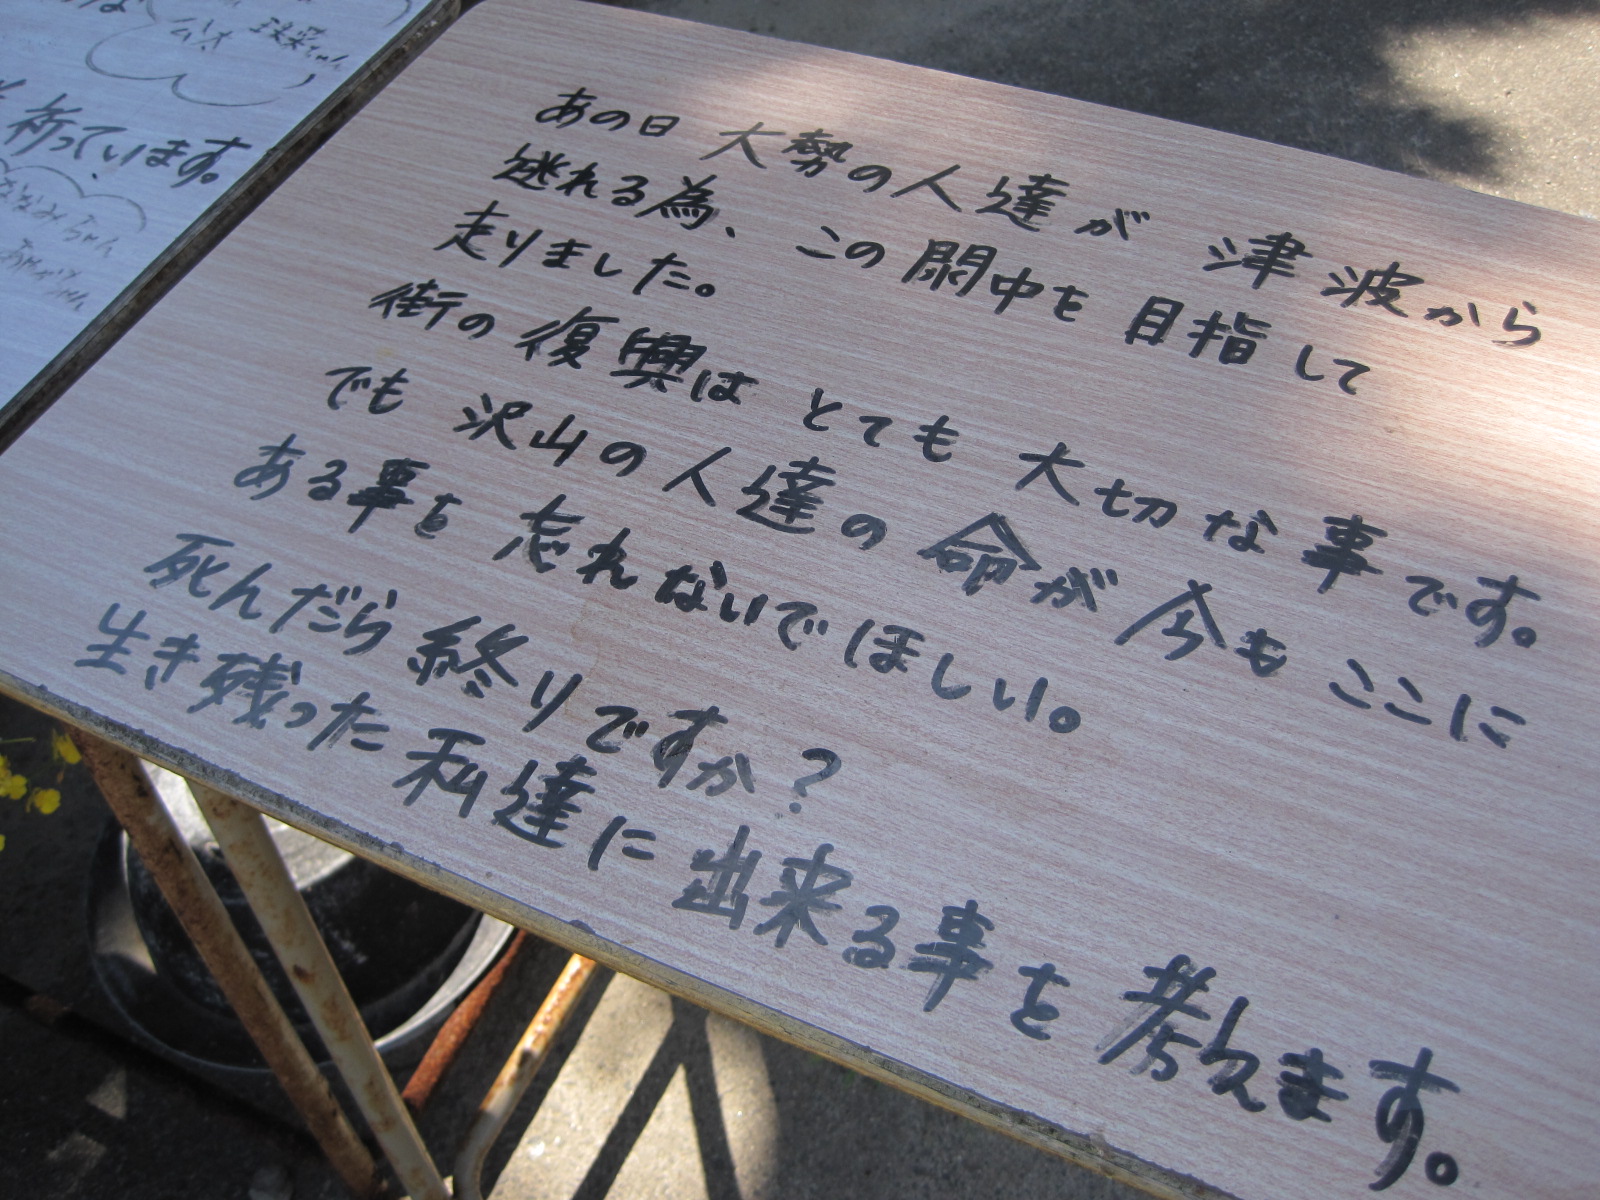 祈っています。
あの日 大勢の人達が 津波から
逃れる為、この閖中を 目指して
走りました。
街の復興は とても 大切な事です。
でも 沢山の人達の 命が 今も ここに
ある事を 忘れないでほしい。
死んだら終りですか?
生き残った私達に 出来る事を 考えます。